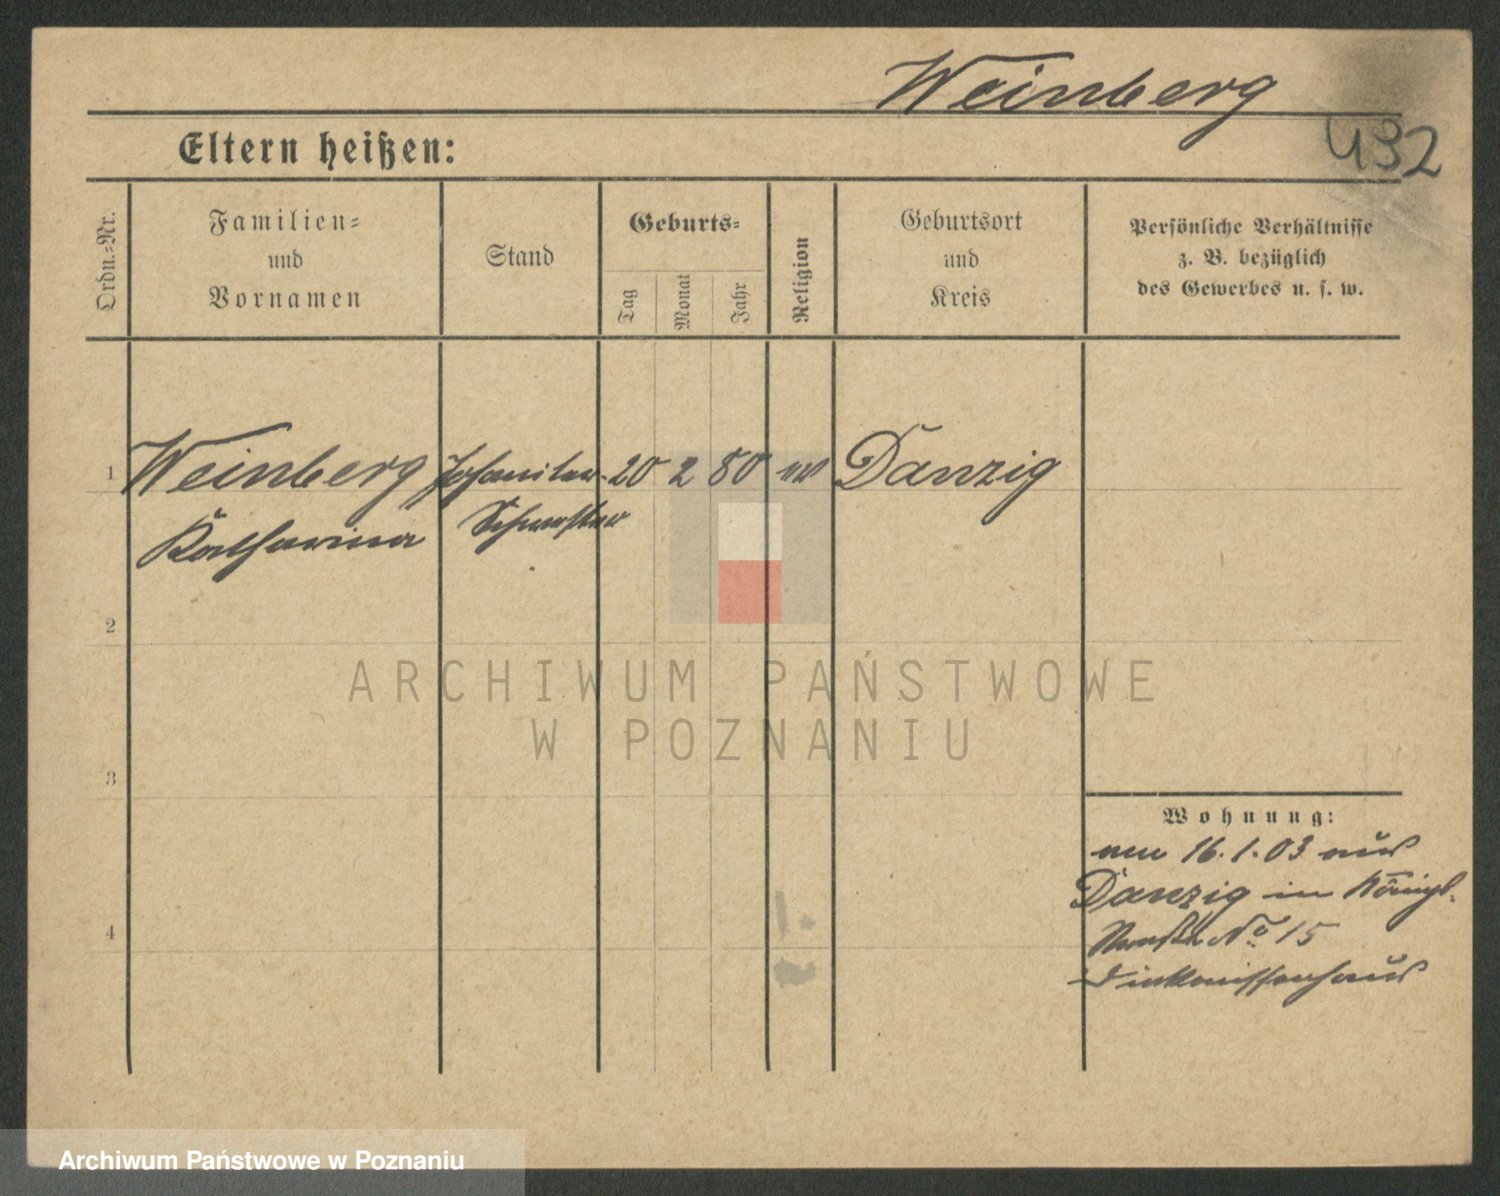 Weinberg
432
Eltern heißen:
Ordn.-Nr.
Familien-
und
Vornamen
Stand
Geburts-
Tag
Monat
Jahr
Religion
Geburtsort
und
Kreis
Persönliche Verhältnisse
z. B. bezüglich
des Gewerbes u. s. w.
1 Weinberg Johanniter- 20 2 80 ev Danzig
Katharina Schwester
2
3
4
Wohnung:
neu 16.1.03 aus
Danzig in Königl.
Straße No 15
Diakonissenhaus
ARCHIWUM PAŃSTWOWE
W POZNANIU
Archiwum Państwowe w Poznaniu